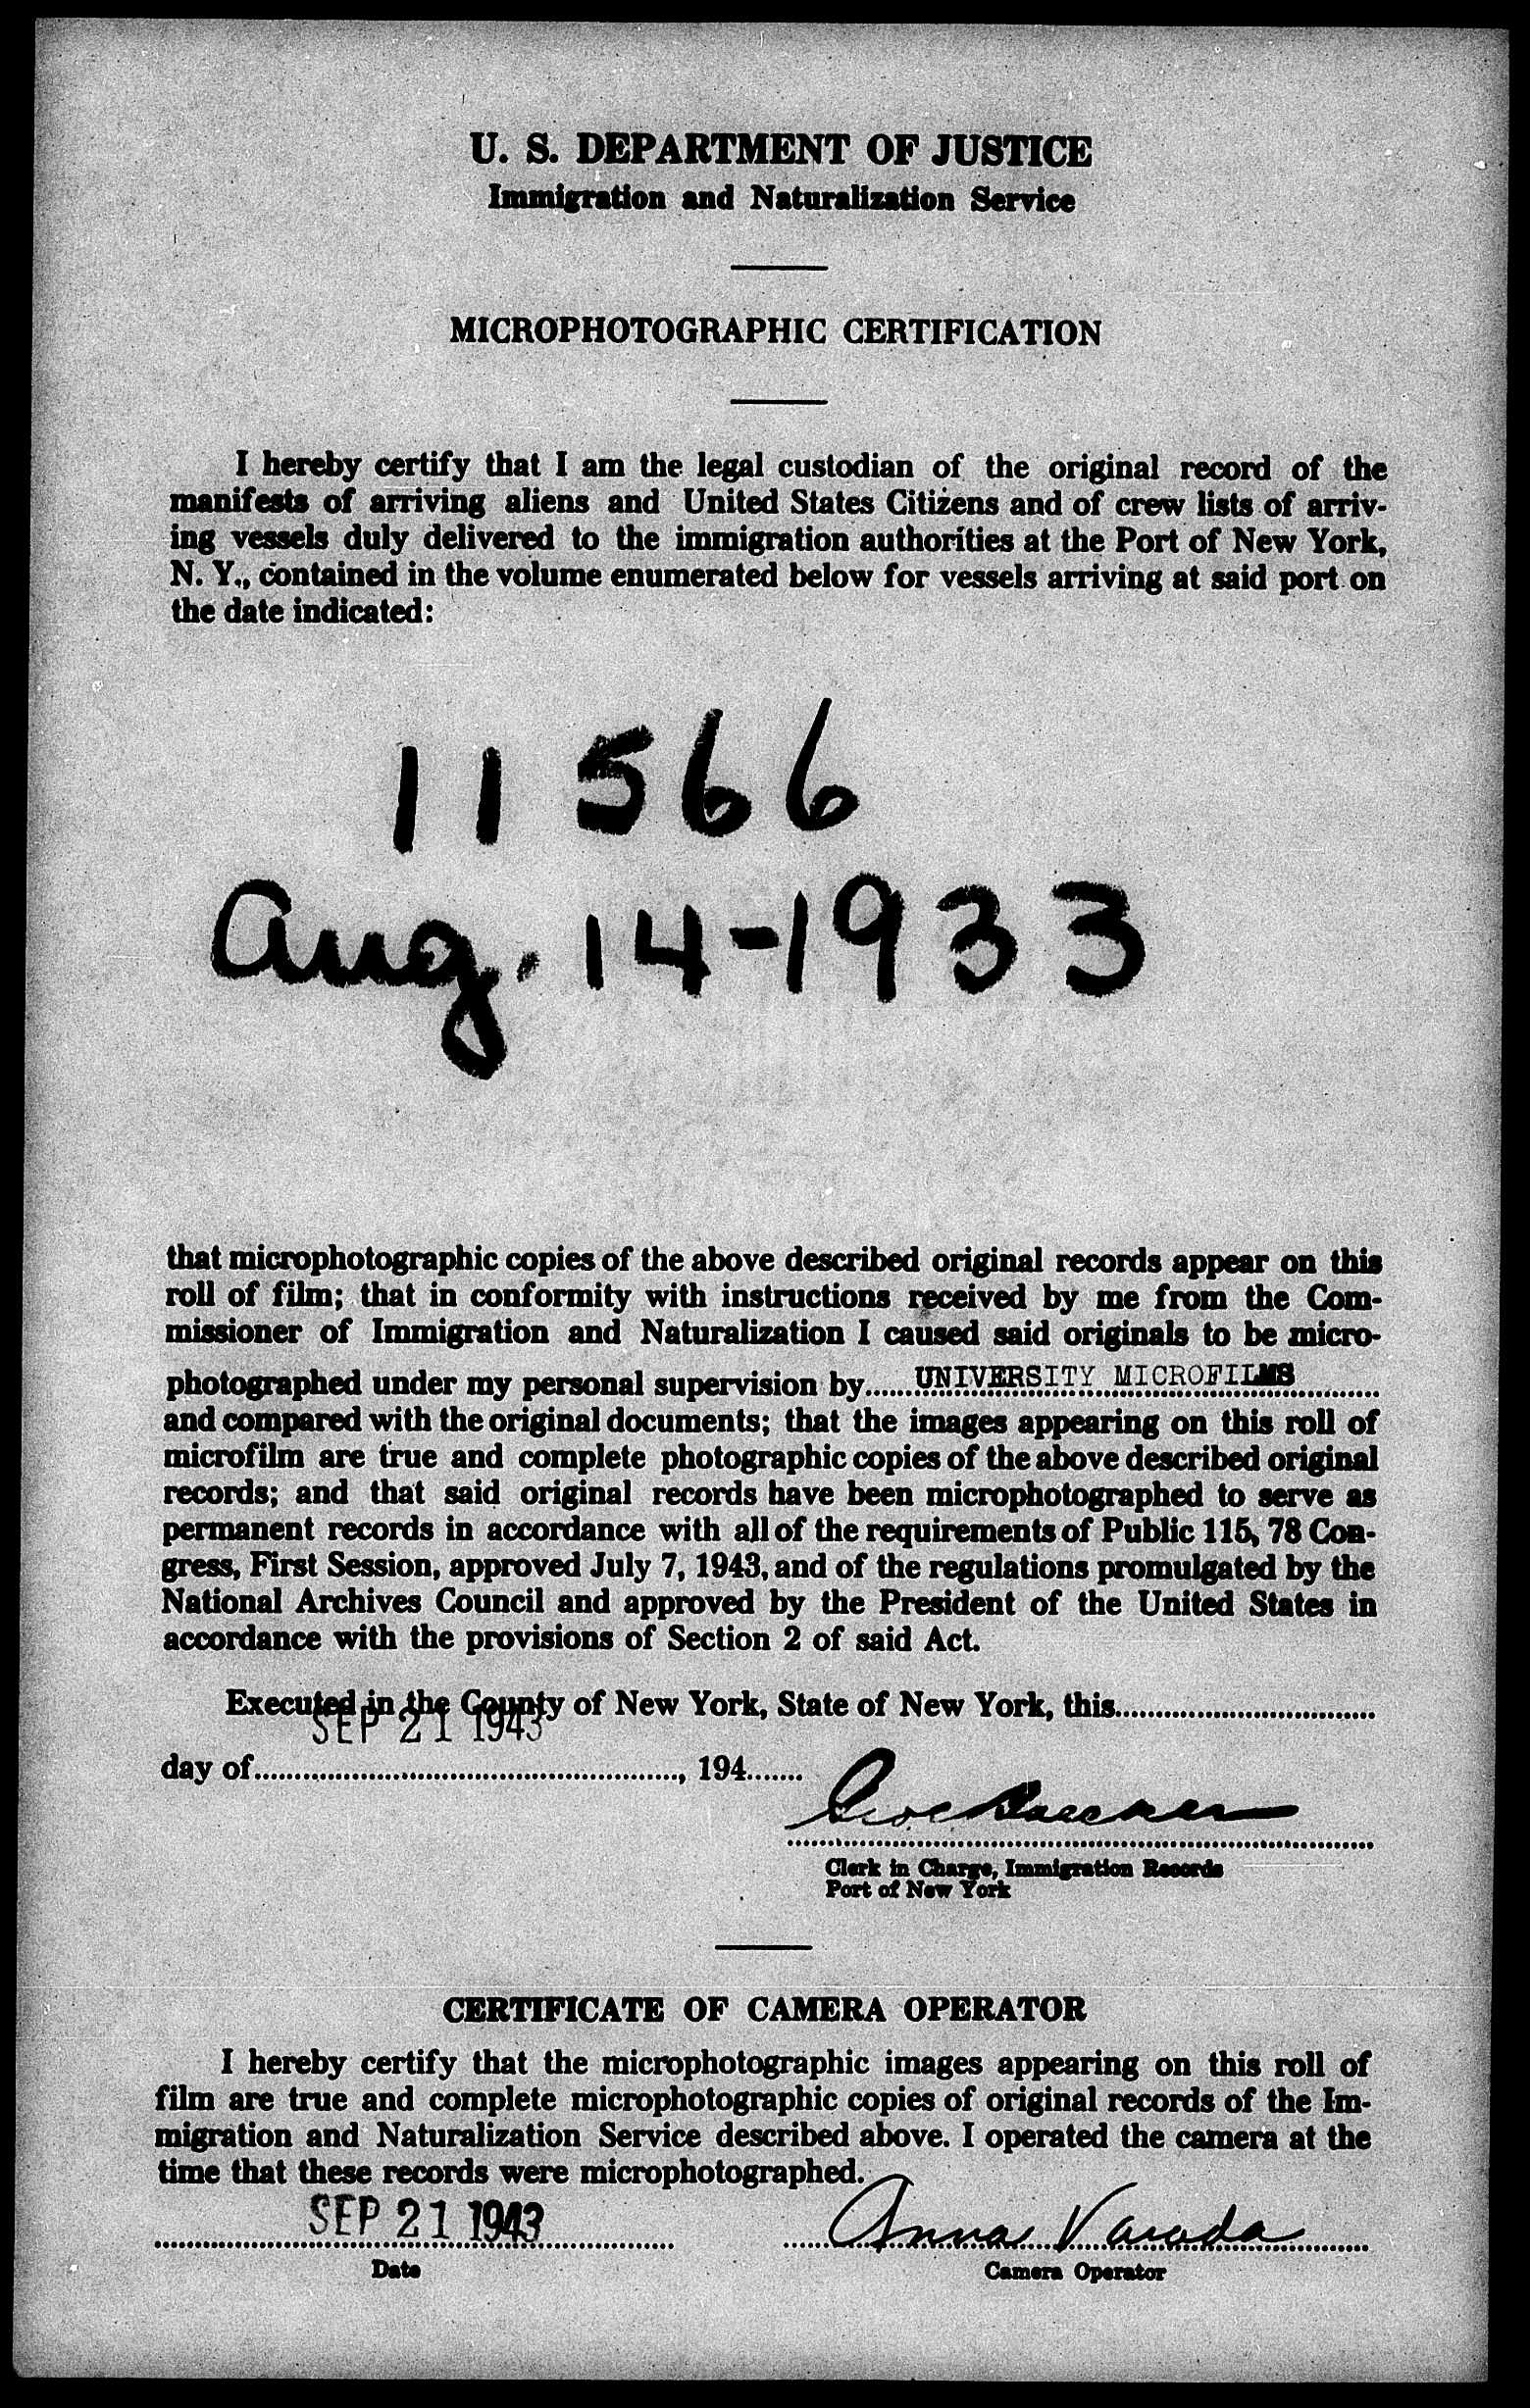 U. S. DEPARTMENT OF JUSTICE
Immigration and Naturalization Service
MICROPHOTOGRAPHIC CERTIFICATION
I hereby certify that I am the legal custodian of the original record of the
manifests of arriving aliens and United States Citizens and of crew lists of arriv-
ing vessels duly delivered to the immigration authorities at the Port of New York,
N. Y., contained in the volume enumerated below for vessels arriving at said port on
the date indicated:
11566
Aug. 14-1933
that microphotographic copies of the above described original records appear on this
roll of film; that in conformity with instructions received by me from the Com-
missioner of Immigration and Naturalization I caused said originals to be micro-
photographed under my personal supervision by......UNIVERSITY MICROFILMS
and compared with the original documents; that the images appearing on this roll of
microfilm are true and complete photographic copies of the above described original
records; and that said original records have been microphotographed to serve as
permanent records in accordance with all of the requirements of Public 115, 78 Con-
gress, First Session, approved July 7, 1943, and of the regulations promulgated by the
National Archives Council and approved by the President of the United States in
accordance with the provisions of Section 2 of said Act.
Executed in the County of New York, State of New York, this................................
SEP 21 1943
day of....................................................., 194.......
Clerk in Charge, Immigration Records
Port of New York
CERTIFICATE OF CAMERA OPERATOR
I hereby certify that the microphotographic images appearing on this roll of
film are true and complete microphotographic copies of original records of the Im-
migration and Naturalization Service described above. I operated the camera at the
time that these records were microphotographed.
SEP 21 1943 Anna Varada
Date Camera Operator